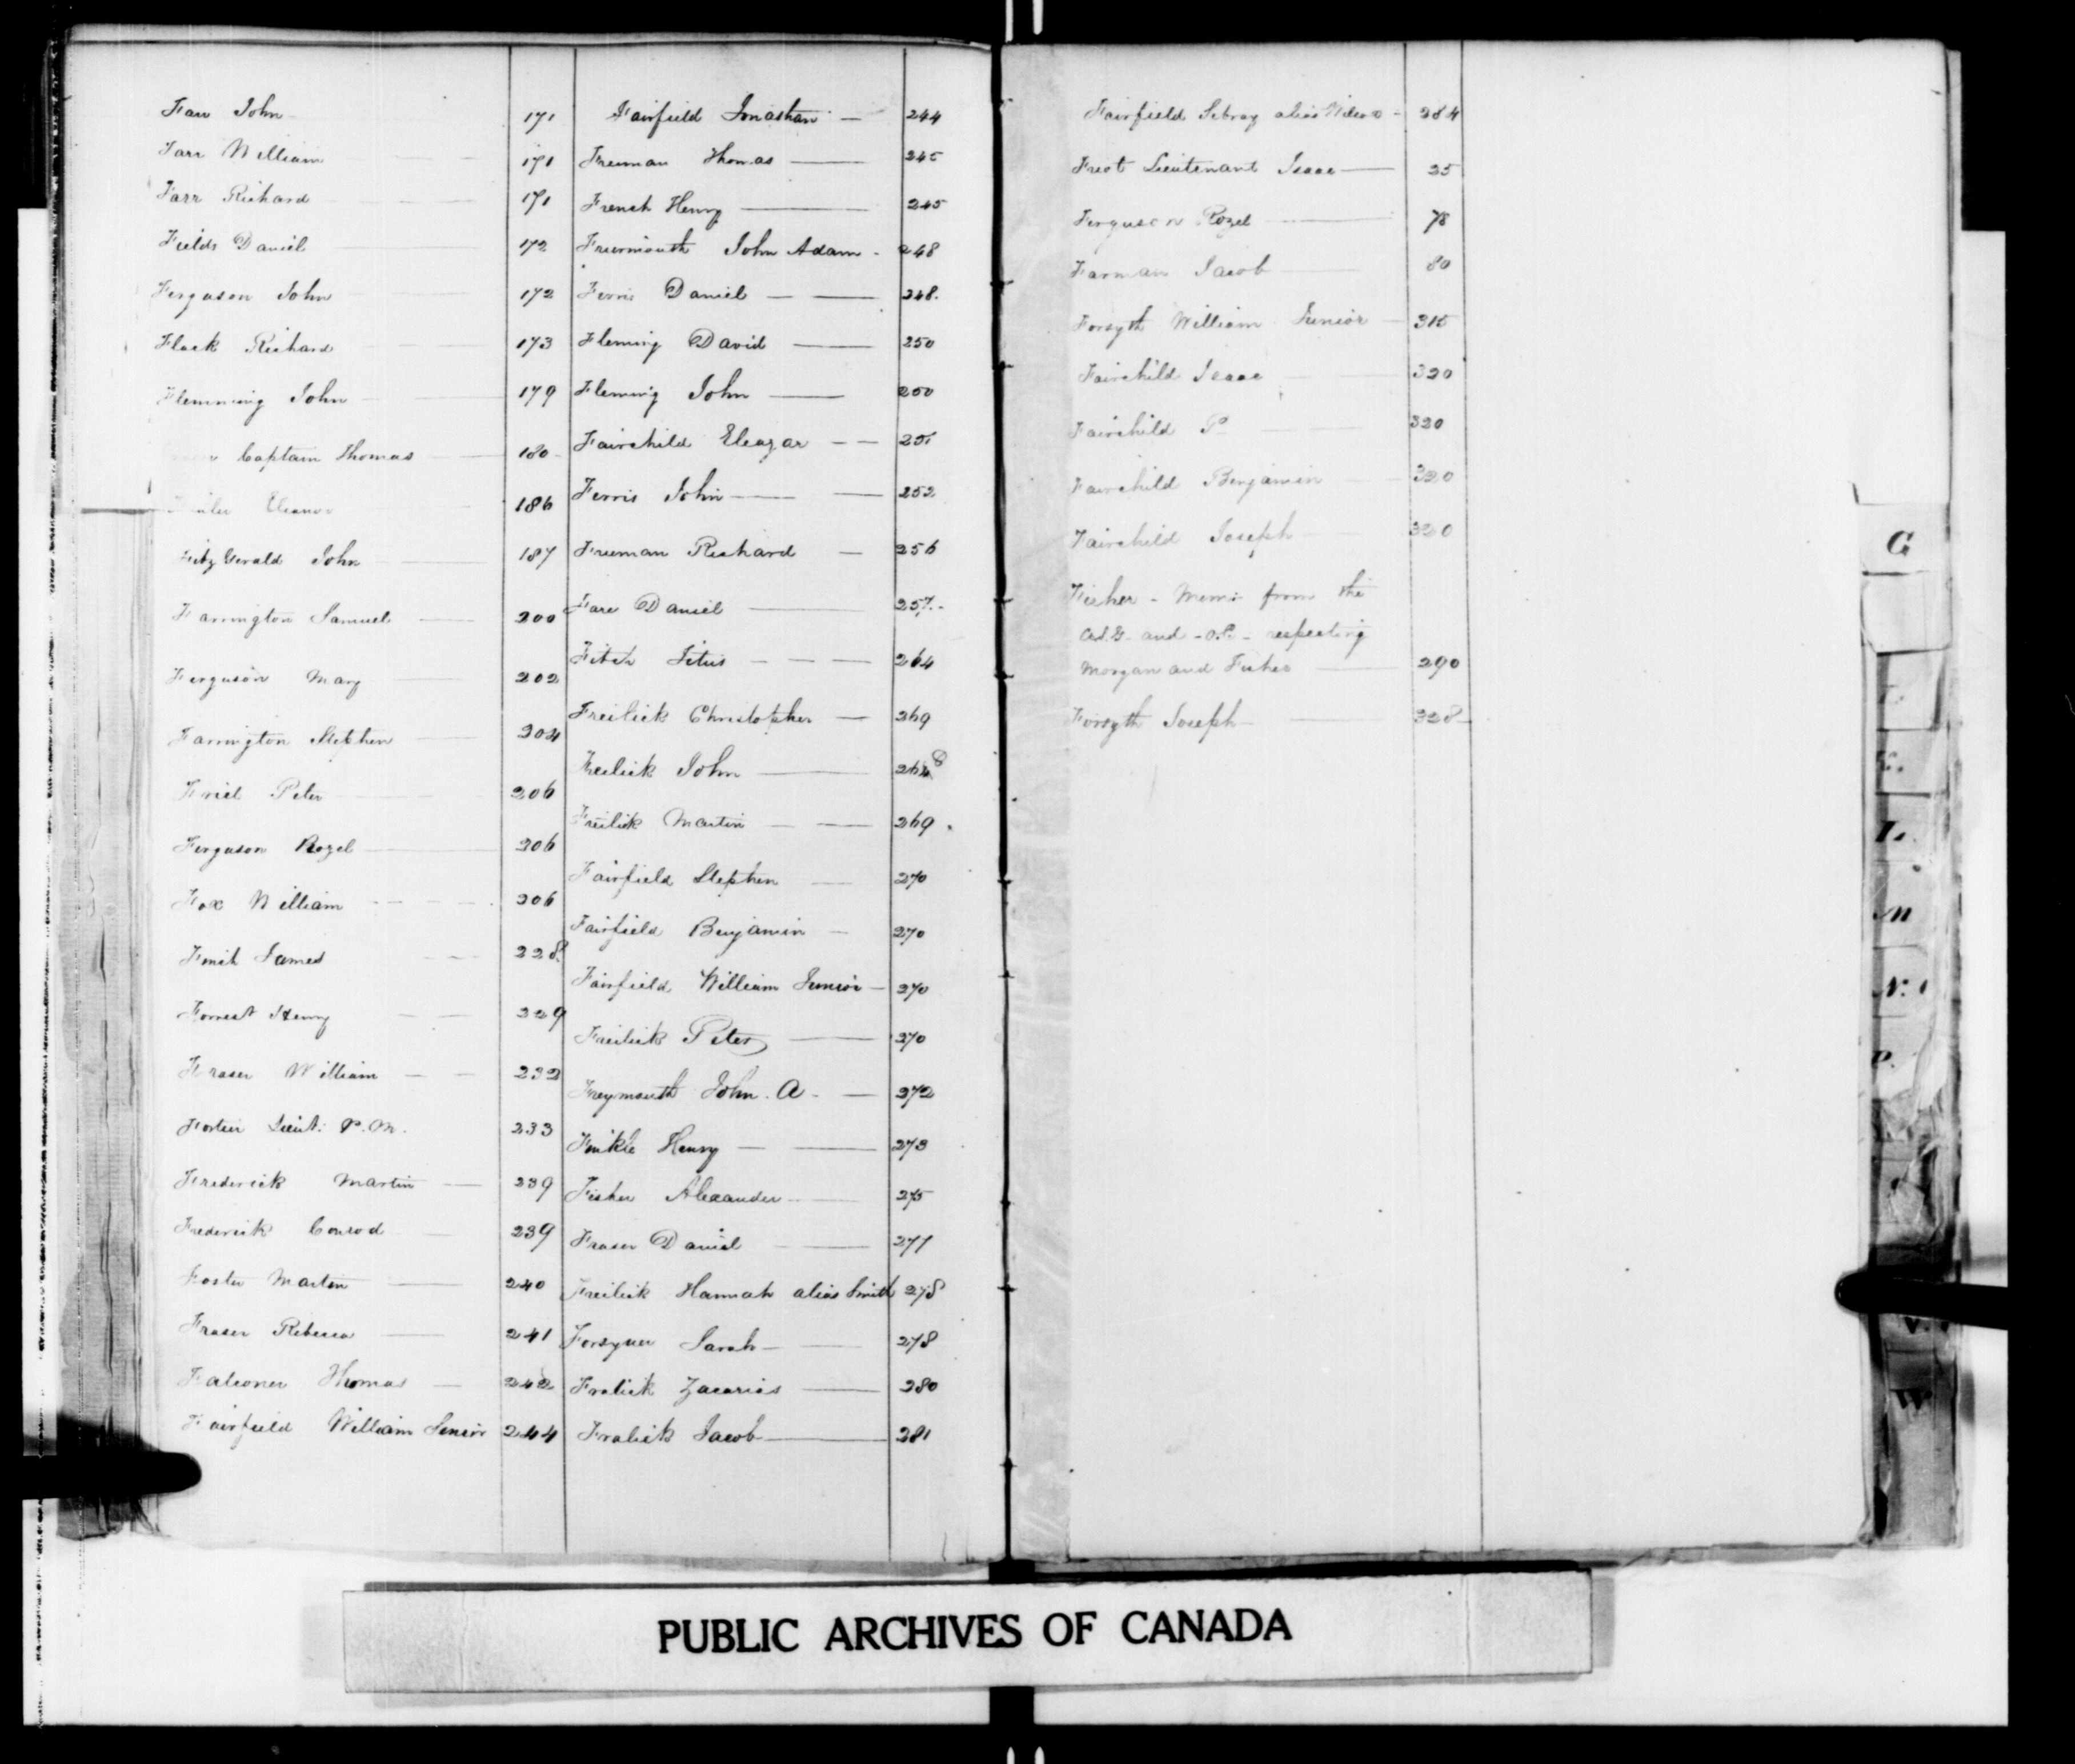 Farr John 171
Farr William 171
Farr Richard 171
Fields Daniel 172
Ferguson John 172
Flack Richard 173
Flemming John 179
Captain Thomas 180
Eleanor 186
Fitz Gerald John 187
Farrington Samuel 200
Ferguson Mary 202
Farrington Stephen 204
Friel Peter 206
Ferguson Rozel 206
Fox William 206
James 228
Forrest Henry 229
Fraser William 232
Lieut. P. M. 233
Frederick Martin 239
Frederick Conrod 239
Foster Martin 240
Fraser Rebecca 241
Falconer Thomas 242
Fairfield William Senior 244
Fairfield Jonathan 244
Freeman Thomas 245
French Henry 245
John Adam 248
Ferris Daniel 248.
Fleming David 250
Fleming John 250
Fairchild Eleazar 251
Ferris John 252
Freeman Richard 256
Fare Daniel 257.
Fitch Titus 264
Freilick Christopher 269
Freilick John
Freilick Martin 269
Fairfield Stephen 270
Fairfield Benjamin 270
Fairfield William Junior 270
Freilick Peter 270
Freymouth John. A. 272
Finkle Henry 273
Fisher Alexander 275
Fraser Daniel 277
Freilick Hannah alias Smith 278
Sarah 278
Fralick Zacarias 280
Fralick Jacob 281
Fairfield alias 284
Lieutenant Isaac 25
Ferguson Rozel 78
Farman Jacob 80
Forsyth William Junior 315
Fairchild Isaac 320
Fairchild P 320
Fairchild Benjamin 320
Fairchild Joseph 320
Fisher - Memo from the
and respecting
Morgan and Fisher 290
Forsyth Joseph 328
G
K.
L.
M
N.
P.
V.
W
PUBLIC ARCHIVES OF CANADA